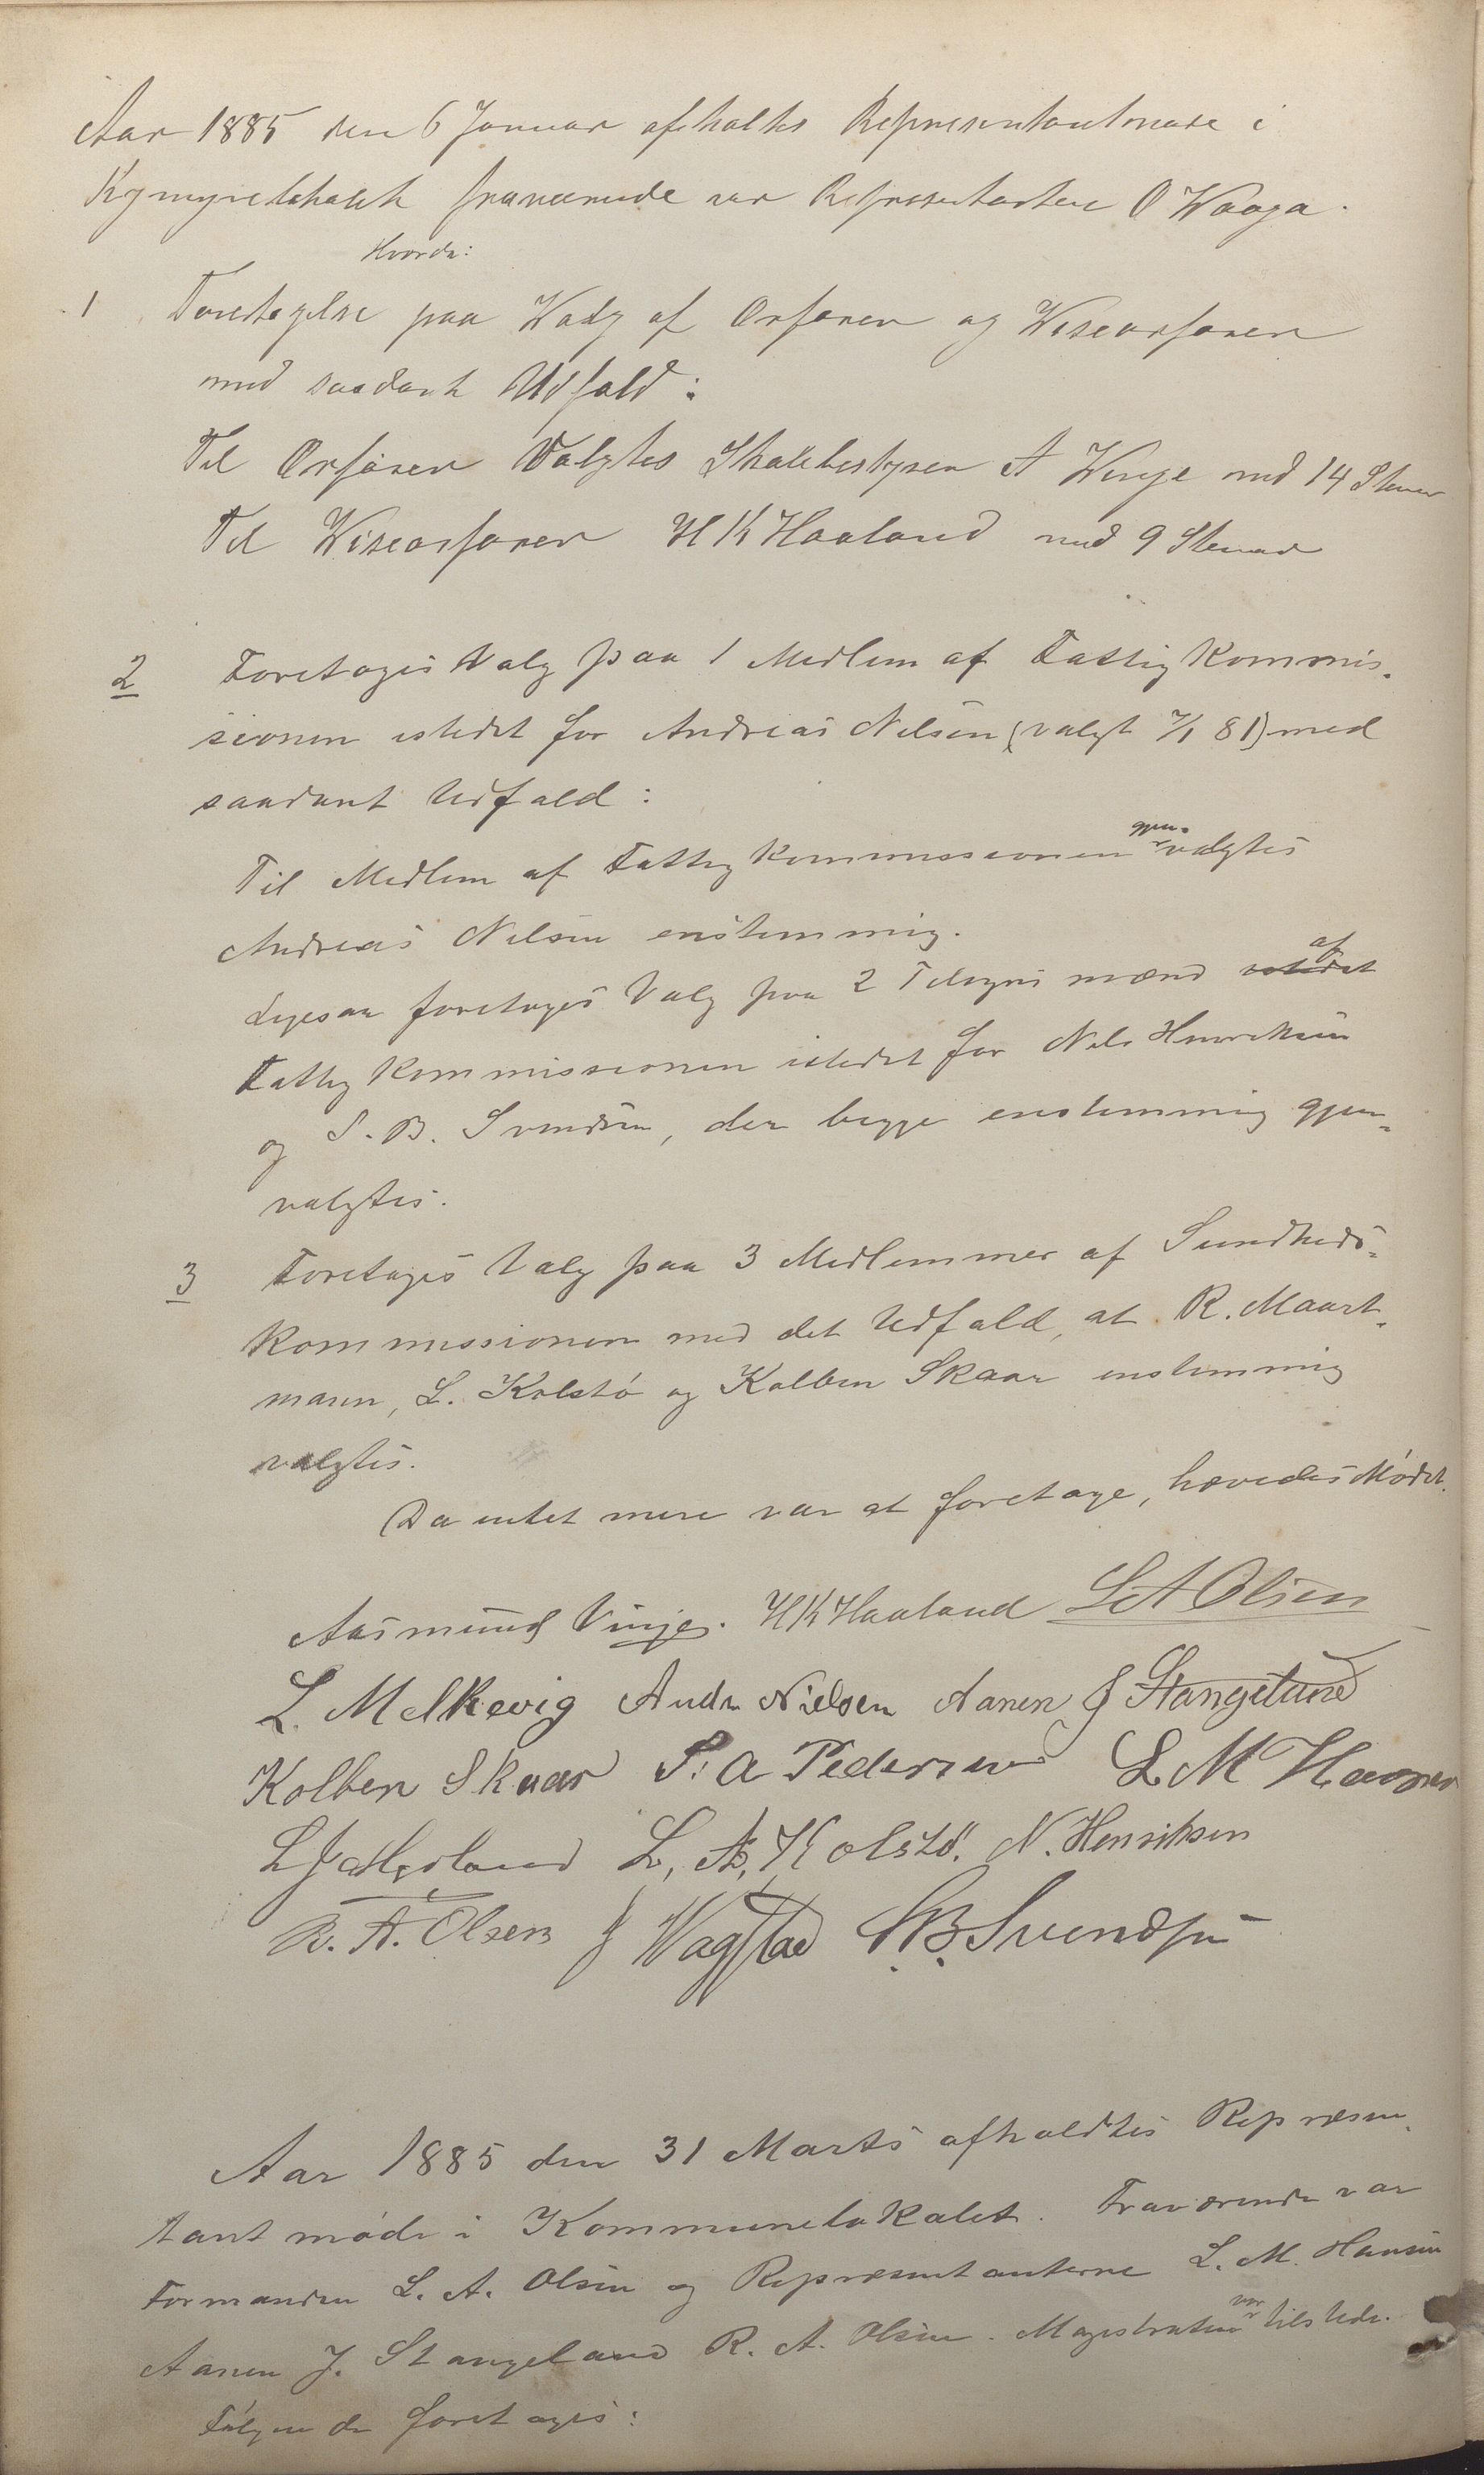 Aar 1885 den 6 Januar afholtes Representantmøde i
fraværende var Representanten O Waaga.
Hvorda:
1 Foretagelse paa Walg af Orføren og Wiseorføren
med saadant Udfald:
Til Orføren Valgtes Skolebestyrer A Winje med 14 Stemer
Til Wiseorføren H K Haaland med 9 Stemer
2 Foretoges Valg paa 1 Medlem af Fattigkommis-
sionen istedet for Andreas Nilsen (valgt 7/1 81) med
saadant Udfald:
gjen-
Til Medlem af Fattigkommissionen valgtes
Andreas Nilsen enstemmig.
af
Ligesaa foretoges Valg paa 2 Tilsynsmænd istedet
Fattigkommissionen istedet for Nils Henriksen
og S. B. Svendsen, der begge enstemmig gjen-
valgtes.
3 Foretoges Valg paa 3 Medlemmer af Sundheds-
kommissionen med det Udfald, at R. Maart-
mann, L. Kolstø og Kolben Skaar enstemmig
valgtes.
Da intet mere var at foretage, hævedes Mødet.
Aasmund Vinje. H K Haaland L A Olsen
L. Melkevig Andr Nielsen Aanen J Stangeland
Kolben Skaar P. A Pedersen L M Hansen
L J Medland L. A. Kolstö. N. Henriksen
R. A. Olsen J Vagstad S. B. Svendsen
Aar 1885 den 31 Marts afholdtes Repræsen-
tantmøde i Kommunelokalet. Fraværende var
Formanden L. A. Olsen og Repræsentanterne L. M. Hansen
var
Aanen J. Stangeland R. A. Olsen. Magistraten tilstede.
Følgende foretoges: